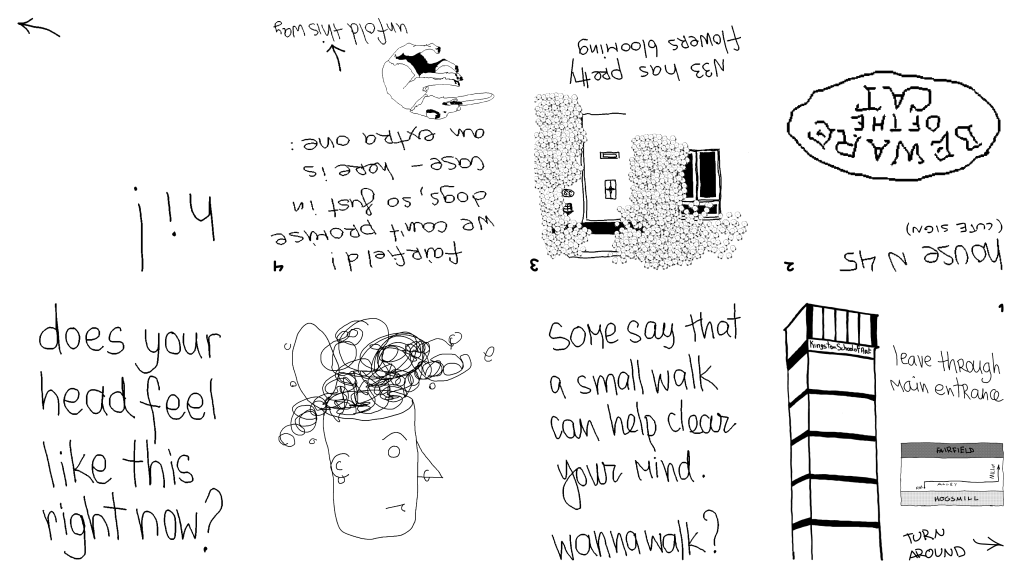 hi!
does your
head feel
like this
right now?
some say that
a small walk
can help clear
your mind.
wanna walk?
1
Kingston School of Art
leave through
main entrance
FAIRFIELD
ALLEY
HOGSMILL
TURN
AROUND
2
house N 45
(CUTE SIGN)
BEWARE
OF THE
CAT
3
N33 has pretty
flowers blooming
4
fairfield!
we can't promise
dogs, so just in
case – here is
an extra one:
unfold this way